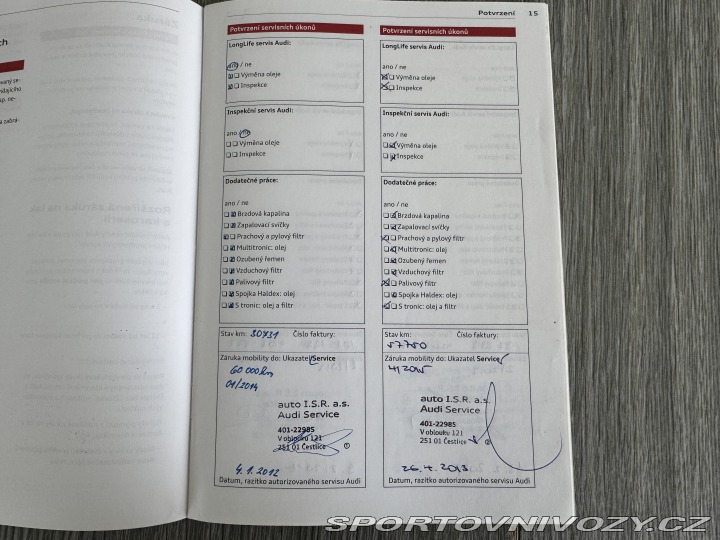 Potvrzení 15
Potvrzení servisních úkonů
LongLife servis Audi:
ano / ne
Výměna oleje
Inspekce
Inspekční servis Audi:
ano / ne
Výměna oleje
Inspekce
Dodatečné práce:
ano / ne
Brzdová kapalina
Zapalovací svíčky
Prachový a pylový filtr
Multitronic: olej
Ozubený řemen
Vzduchový filtr
Palivový filtr
Spojka Haldex: olej
S tronic: olej a filtr
Stav km: 30431 Číslo faktury:
Záruka mobility do: Ukazatel Service
60 000 km
01/2014
auto I.S.R. a.s.
Audi Service
401-22985
V oblouku 121
251 01 Čestlice
4.1.2012
Datum, razítko autorizovaného servisu Audi
Potvrzení servisních úkonů
LongLife servis Audi:
ano / ne
Výměna oleje
Inspekce
Inspekční servis Audi:
ano / ne
Výměna oleje
Inspekce
Dodatečné práce:
ano / ne
Brzdová kapalina
Zapalovací svíčky
Prachový a pylový filtr
Multitronic: olej
Ozubený řemen
Vzduchový filtr
Palivový filtr
Spojka Haldex: olej
S tronic: olej a filtr
Stav km: Číslo faktury:
57750
Záruka mobility do: Ukazatel Service
4/2015
auto I.S.R. a.s.
Audi Service
401-22985
V oblouku 121
251 01 Čestlice
26.4.2013
Datum, razítko autorizovaného servisu Audi
SPORTOVNIVOZY.CZ